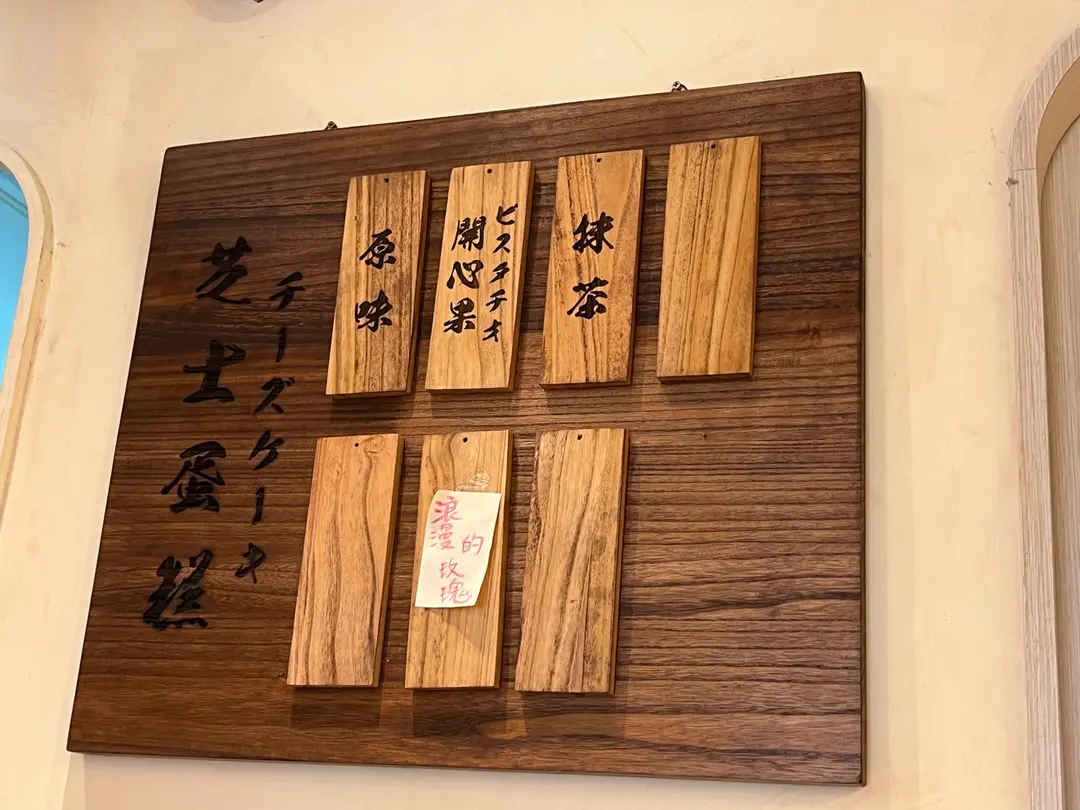 芝士蛋糕
チーズケーキ
原味
開心果
ピスタチオ
抹茶
浪漫的
玫瑰